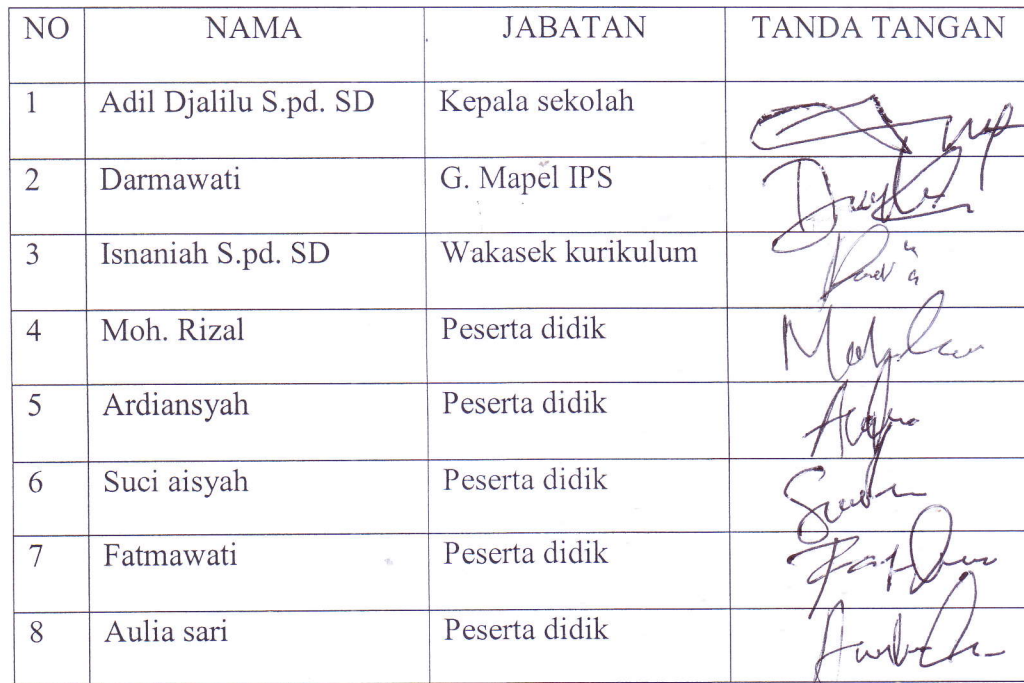 NO NAMA JABATAN TANDA TANGAN
1 Adil Djalilu S.pd. SD Kepala sekolah
2 Darmawati G. Mapel IPS
3 Isnaniah S.pd. SD Wakasek kurikulum
4 Moh. Rizal Peserta didik
5 Ardiansyah Peserta didik
6 Suci aisyah Peserta didik
7 Fatmawati Peserta didik
8 Aulia sari Peserta didik